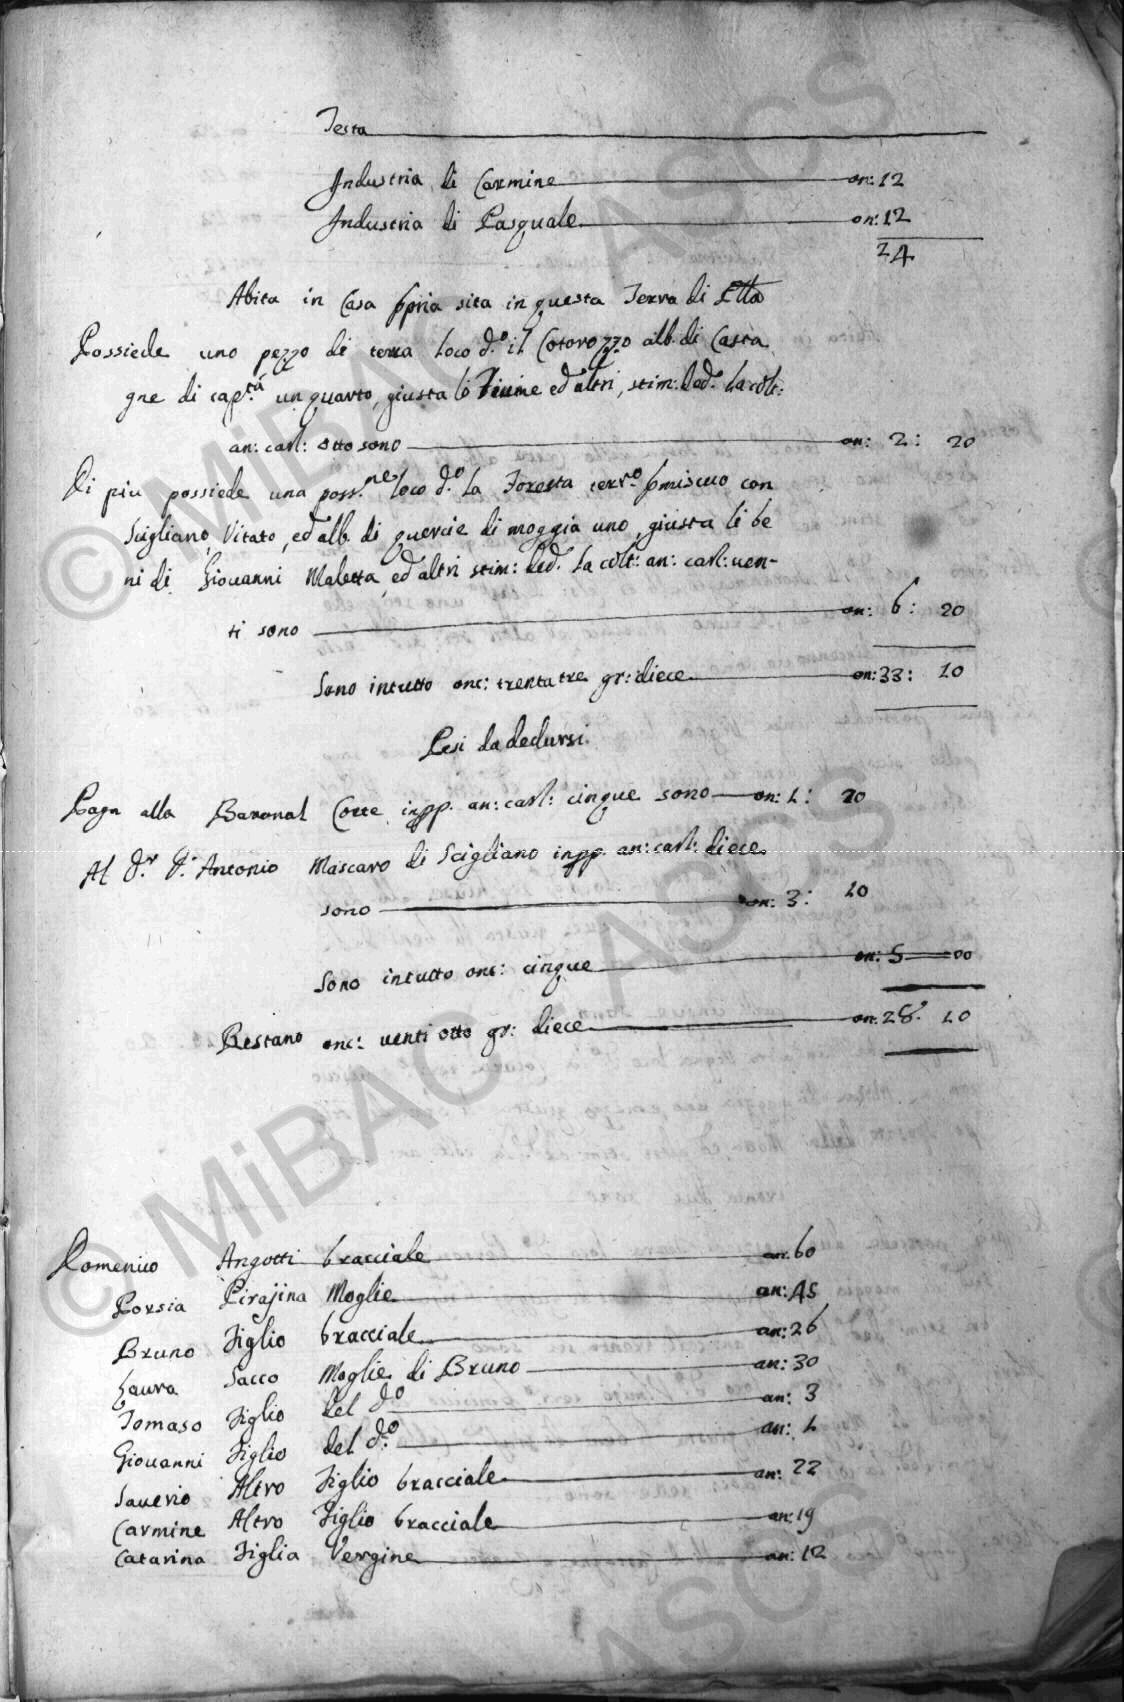 Testa
Industria di Carmine on: 12
Industria di Pasquale on: 12
24
Abita in Casa ppria sita in questa Terra di
Possiede uno pezzo di terra loco d.o il Cotorozzo alb. di Casta
gne di cap.tà un quarto, giusta lo Fiume ed altri, stim: ded.a la colt:
an: carl: otto sono on: 2: 20
Di piu possiede una poss.ne loco d.o la Foresta terr.o pmiscuo con
Scigliano, Vitato, ed alb. di quercie di moggia uno, giusta li be
ni di Giovanni Maletta, ed altri stim: ded.a la colt: an: carl: ven-
ti sono on: 6: 20
Sono intutto onc: trenta tre gr: diece on: 33: 10
Pesi da dedursi
Paga alla Baronal Corte inpp. an: carl: cinque sono on: 1: 20
Al D.r D. Antonio Mascaro di Scigliano inpp. an: carl: diece
sono on: 3: 10
Sono intutto onc: cinque on: 5 00
Restano onc: venti otto gr: diece on: 28. 10
Domenico Angotti bracciale an: 60
Porsia Pirajina Moglie an: 45
Bruno Figlio bracciale an: 26
Laura Sacco Moglie di Bruno an: 30
Tomaso Figlio del d.o an: 3
Giovanni Figlio del d.o an: 1
Saverio Altro Figlio bracciale an: 22
Carmine Altro Figlio bracciale an: 19
Catarina Figlia Vergine an: 12
© MiBAC - ASCS
© MiBAC - ASCS
ASCS